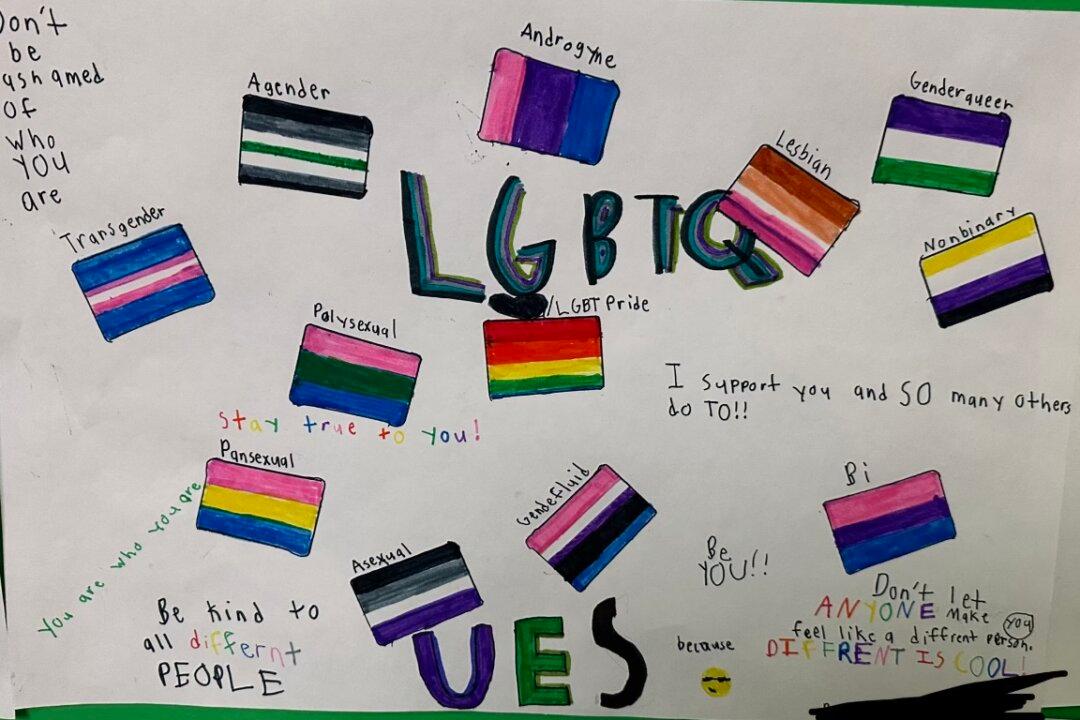 Don't
be
ashamed
of
who
YOU
are
Agender
Androgyne
Genderqueer
Lesbian
Transgender
Nonbinary
LGBTQ
/LGBT Pride
Polysexual
I support you and SO many others
do TO!!
Stay true to you!
Pansexual
You are who you are
Gendefluid
Bi
Asexual
Be
YOU!!
Be kind to
all differnt
PEOPLE
UES
because
Don't let
ANYONE make you
feel like a diffrent person.
DIFFRENT IS COOL!